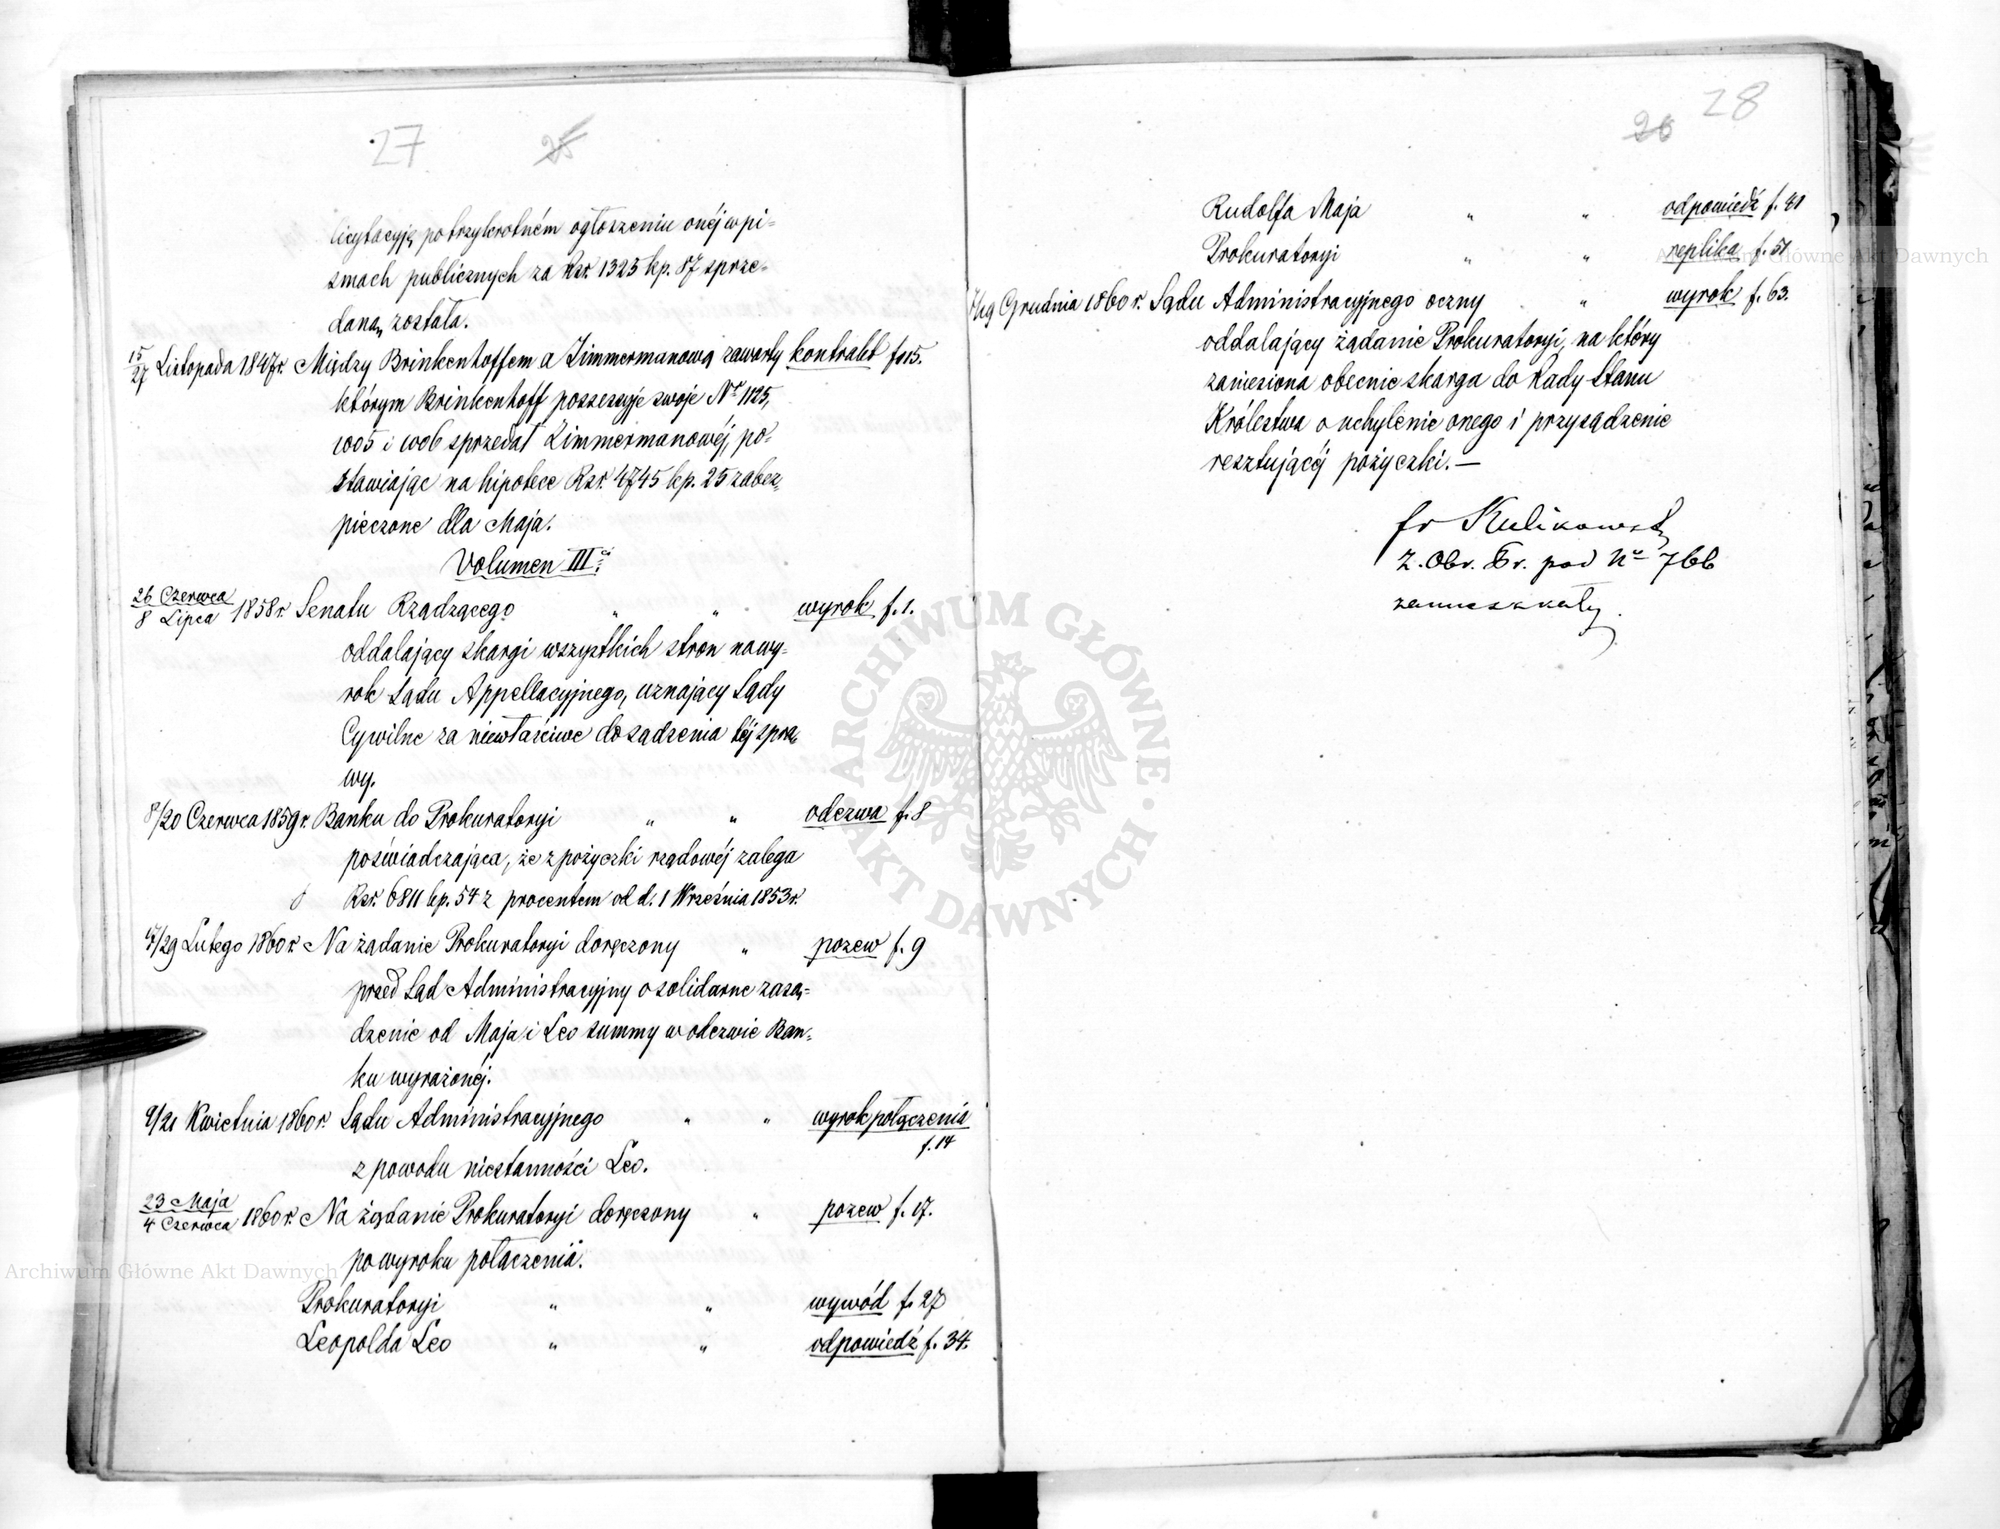 27 25
licytacyję po trzykrotném ogłoszeniu onéj w pi=
smach publicznych za Rsr. 1323 kp. 87 sprze=
daną została.
15/27 Listopada 1847 r. Między Brinkenhoffem a Zimmermanową zawarty kontrakt f. 115.
którym Brinkenhoff possessyje swoje Nr 1125,
1005 i 1006 sprzedał Zimmermanowéj, po=
stawiając na hipotece Rsr. 4745 kp. 25 zabez=
pieczone dla Maja.
Volumen III
26 Czerwca/8 Lipca 1858 r. Senatu Rządzącego " " wyrok f. 1.
oddalający skargi wszystkich stron na wy=
rok Sądu Appellacyjnego, uznający Sądy
Cywilne za niewłaściwe do sądzenia téj spra=
wy.
8/20 Czerwca 1859 r. Banku do Prokuratoryi " " odezwa f. 8
poświadczająca, że z pożyczki rządowéj zalega
Rsr. 6811 kp. 54 z procentem od d. 1 Września 1853 r.
17/29 Lutego 1860 r. Na żądanie Prokuratoryi doręczony " pozew f. 9
przed Sąd Administracyjny o solidarne zasą=
dzenie od Maja i Leo summy w odezwie Ban=
ku wyrażonéj.
9/21 Kwietnia 1860 r. Sądu Administracyjnego " " wyrok połączenia
f. 14
z powodu niestanności Leo.
23 Maja/4 Czerwca 1860 r. Na żądanie Prokuratoryi doręczony " pozew f. 17.
po wyroku połączenia.
Prokuratoryi " " wywód f. 27
Leopolda Leo " " odpowiedź f. 34.
26 28
Rudolfa Maja " " odpowiedź f. 41
Prokuratoryi " " replika f. 51
7/19 Grudnia 1860 r. Sądu Administracyjnego oczny " wyrok f. 63.
oddalający żądanie Prokuratoryi, na który
zaniesiona obecnie skarga do Rady Stanu
Królestwa o uchylenie onego i przysądzenie
resztującéj pożyczki. —
fr Kulikowski
Z. Obr. Pr. pod No 766
zamieszkały.
ARCHIWUM GŁÓWNE · AKT DAWNYCH ·
Archiwum Główne Akt Dawnych
Archiwum Główne Akt Dawnych